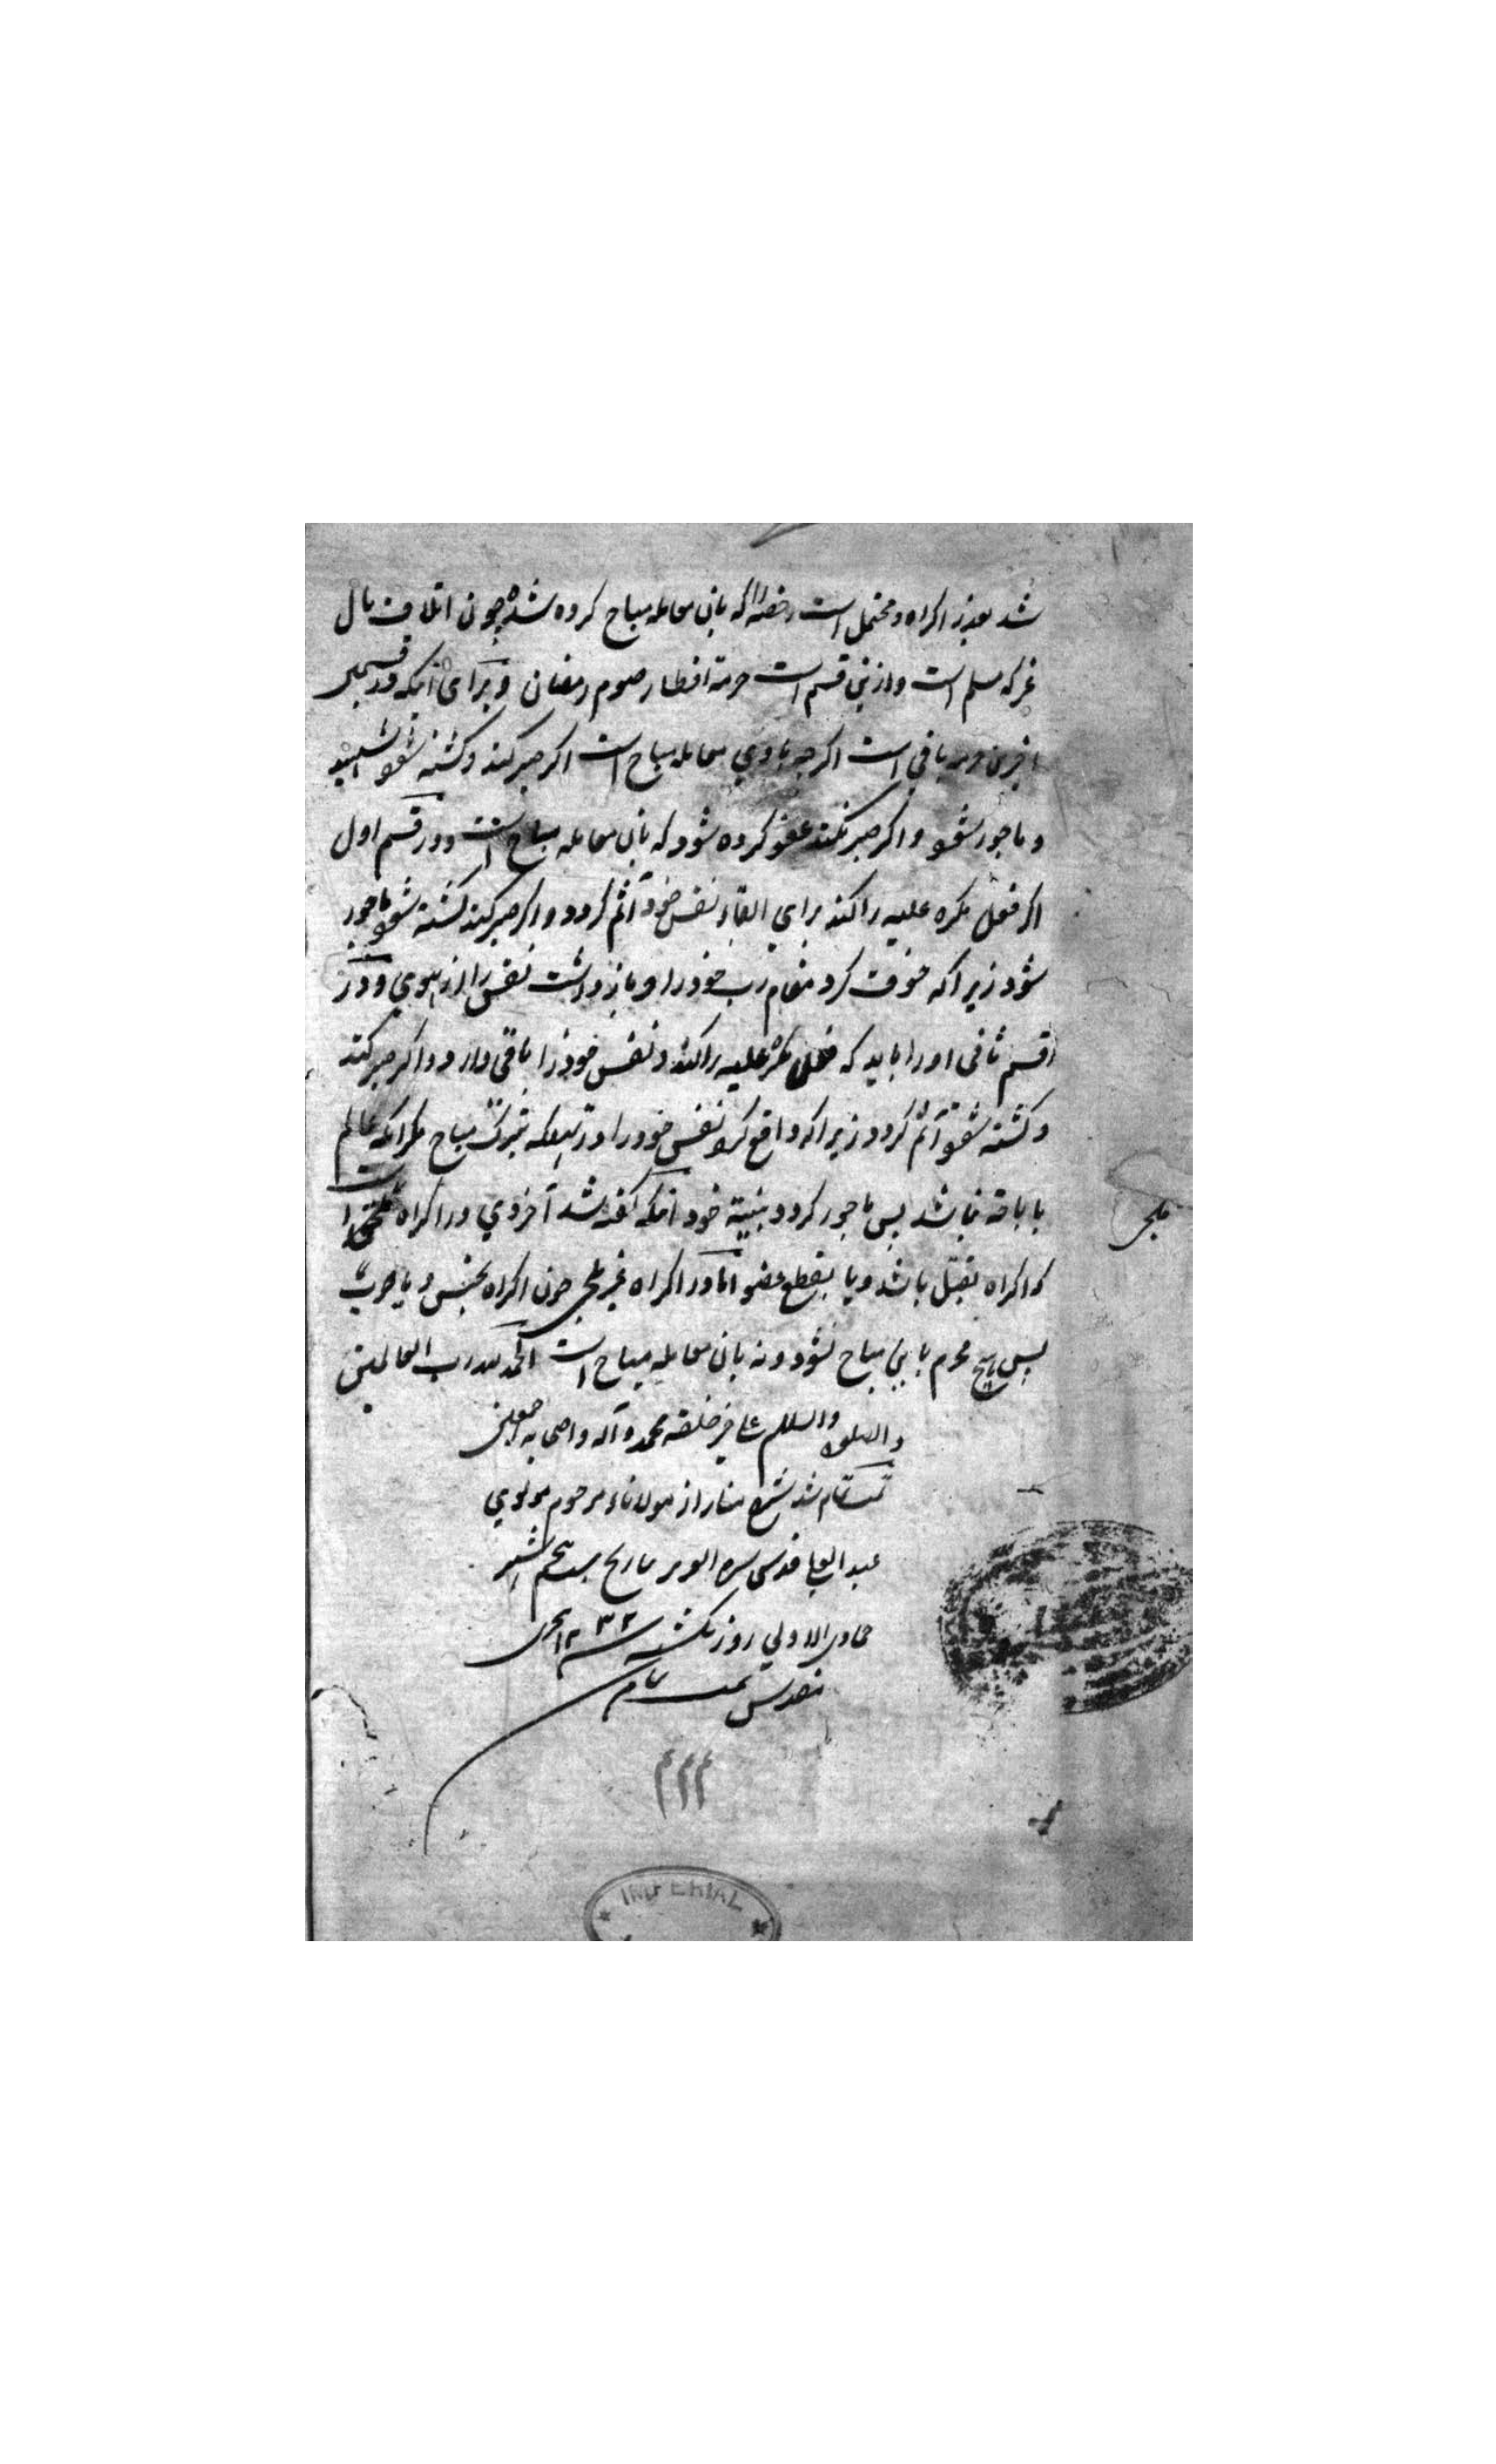 شد بعذر اکراه و محتمل است رخصة را که بانی معامله مباح کرده شده چون اتلاف مال
غیر که مسلم است و ازینی قسم است حرمة افطار صوم رمضان و برای آنکه در قسمی
اخرین حرمة باقی است اکر چه با وی معامله مباح است اکر صبر کند و کشته شود شهید
و ماجور شود و اکر صبر نکند عفو کرده شود که بانی معامله مباح است و در قسم اول
اکر فعل مکره علیه را کند برای القاء نفس خود آثم کردد و اکر صبر کند کشته شود ماجور
شود زیرا که خوف کرد مقام رب خود را و بازداشت نفس را از هوی و در
قسم ثانی او را باید که فعل مکره علیه را کند و نفس خود را باقی دارد و اکر صبر کند
و کشته شود آثم کردد زیرا که واقع کرد نفس خود را در تهلکه بترک مباح مکر آنکه عالم
باباحة نباشد پس ماجور کردد بنیة خود آنکه کفته شد آخروی در اکراه ملجی است
که اکراه بقتل باشد و یا بقطع عضو اما در اکراه غیر ملجی چون اکراه بحبس و یا ضرب
پس هیچ محرم باین مباح نشود و نه بانی معامله مباح است الحمد لله رب العالمین
ملجی
والصلوة والسلام علی خیر خلقه محمد و آله و اصحابه اجمعین
تمت تمام شد شرح منار از مولانا مرحوم مولوی
عبد العلی قدس سره العزیز بتاریخ پنجم شهر
جمادی الاولی روز یکشنبه سنه ۱۲۳۲ هجری
تمت تمام
۲۲۲
IMPERIAL